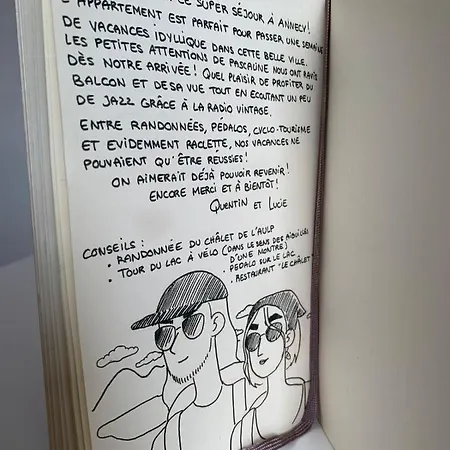 CE SUPER SÉJOUR À ANNECY!
L'APPARTEMENT EST PARFAIT POUR PASSER UNE SEMAINE
DE VACANCES IDYLLIQUE DANS CETTE BELLE VILLE.
LES PETITES ATTENTIONS DE PASCALINE NOUS ONT RAVIS
DÈS NOTRE ARRIVÉE! QUEL PLAISIR DE PROFITER DU
BALCON ET DE SA VUE TOUT EN ECOUTANT UN PEU
DE JAZZ GRÂCE À LA RADIO VINTAGE.
ENTRE RANDONNÉES, PÉDALOS, CYCLO-TOURISME
ET EVIDEMMENT RACLETTE, NOS VACANCES NE
POUVAIENT QU'ÊTRE RÉUSSIES!
ON AIMERAIT DÉJÀ POUVOIR REVENIR!
ENCORE MERCI ET À BIENTÔT!
QUENTIN ET LUCIE
CONSEILS :
• RANDONNÉE DU CHÂLET DE L'AULP
• TOUR DU LAC À VÉLO (DANS LE SENS DES AIGUILLES
D'UNE MONTRE)
• PEDALO SUR LE LAC
• RESTAURANT "LE CHÂLET"